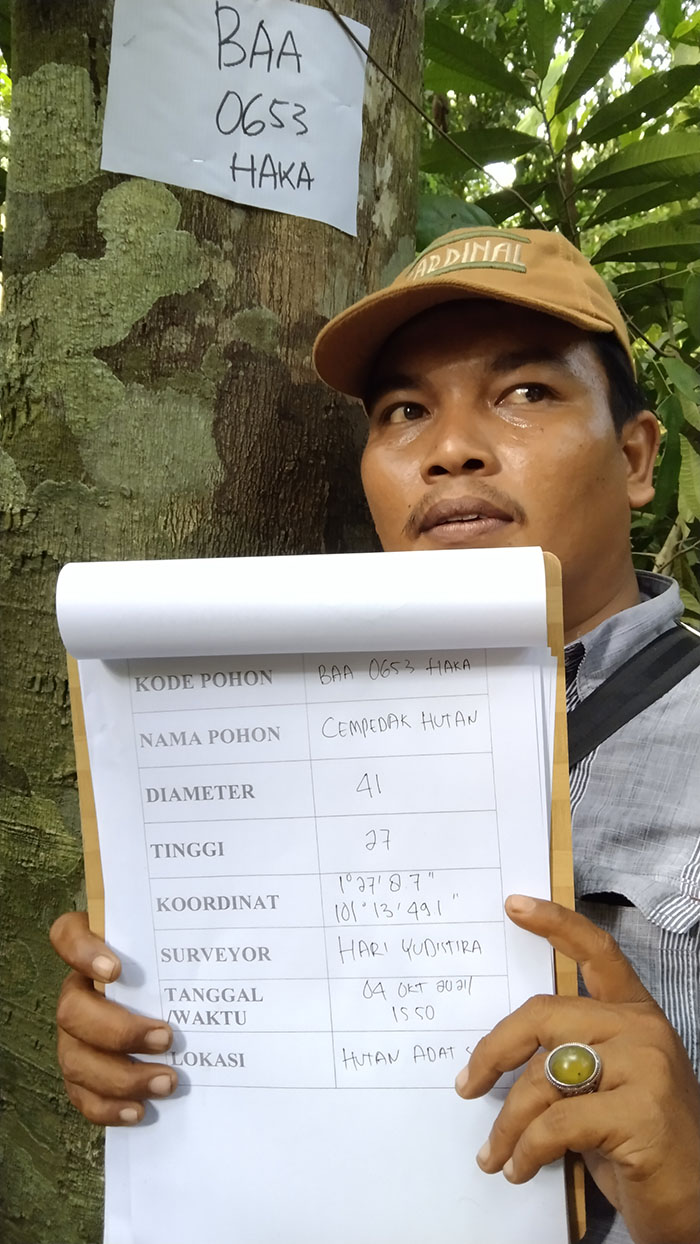 BAA
0653
HAKA
CARDINAL
KODE POHON BAA 0653 HAKA
NAMA POHON CEMPEDAK HUTAN
DIAMETER 41
TINGGI 27
KOORDINAT 1°27'87"
101°13'491"
SURVEYOR HARI YUDISTIRA
TANGGAL 04 OKT 2021/
/WAKTU 1550
LOKASI HUTAN ADAT